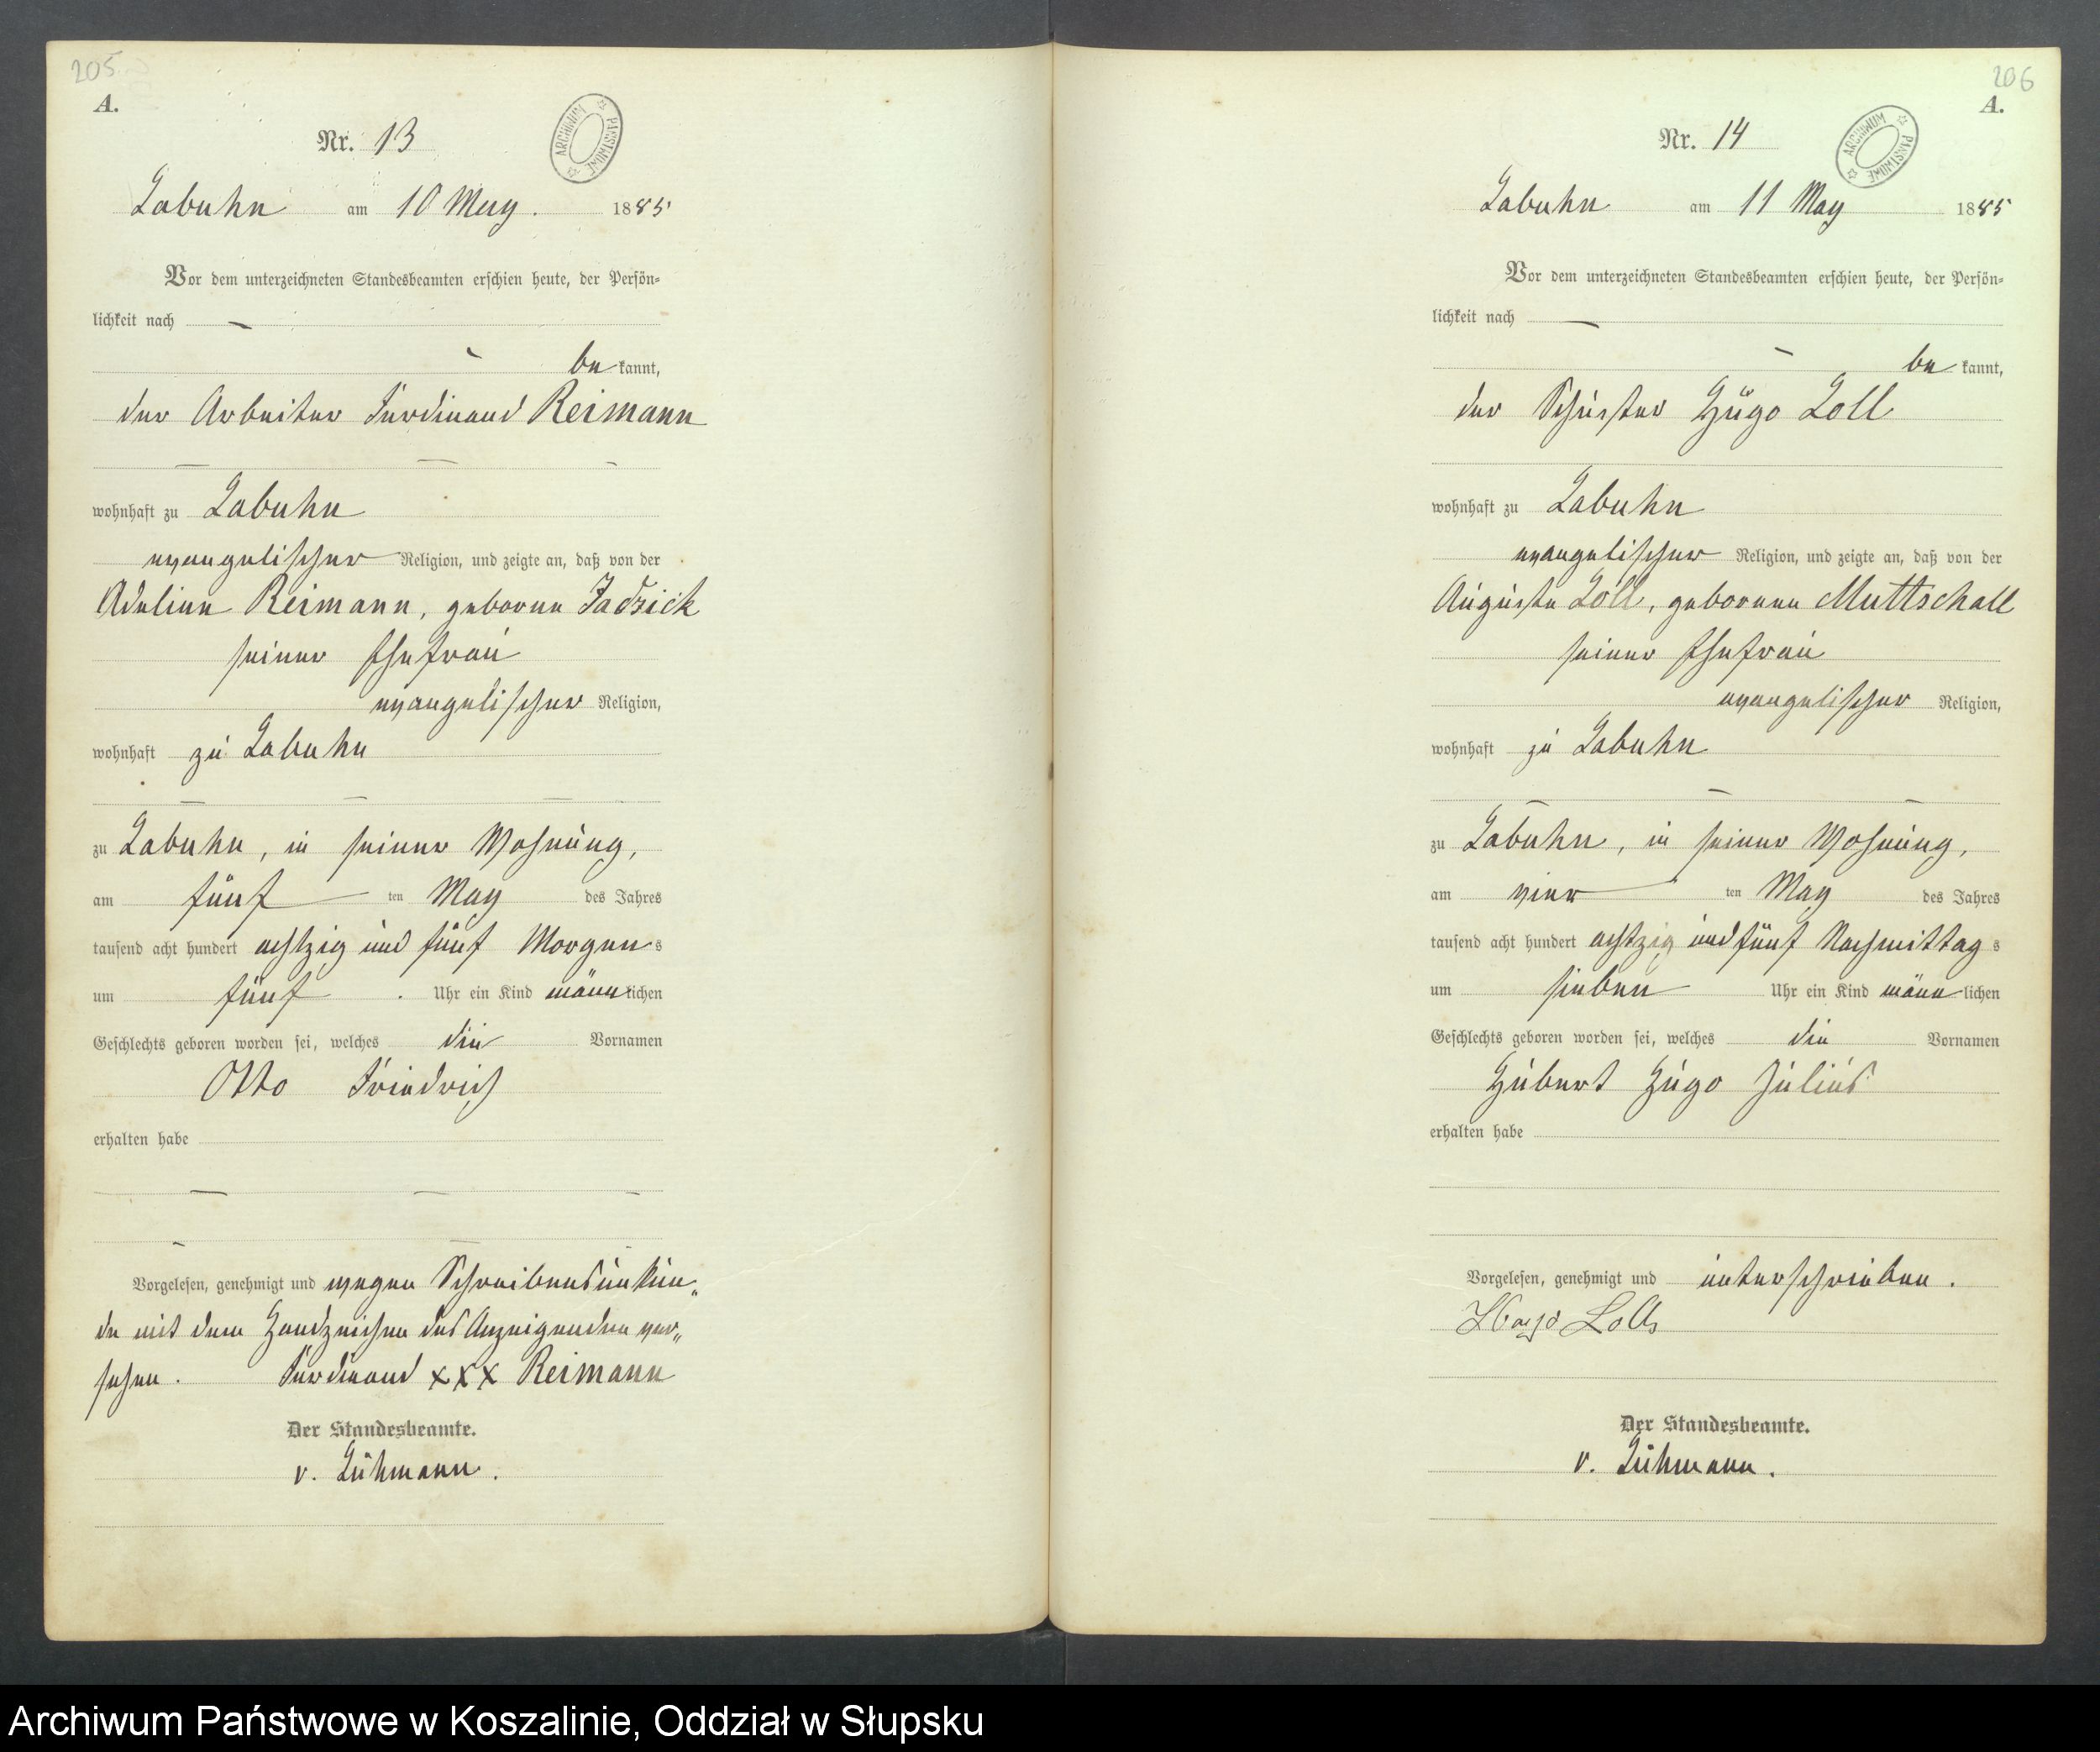 205
A.
ARCHIWUM PAŃSTWOWE
Nr. 13
Labuhn am 10 May. 1885
Vor dem unterzeichneten Standesbeamten erschien heute, der Persön-
lichkeit nach —
be kannt,
der Arbeiter Ferdinand Reimann
wohnhaft zu Labuhn
evangelischer Religion, und zeigte an, daß von der
Adeline Reimann, geborne Jadzick
seiner Ehefrau
evangelischer Religion,
wohnhaft zu Labuhn
zu Labuhn, in seiner Wohnung,
am fünf ten May des Jahres
tausend acht hundert achtzig und fünf Morgens
um fünf Uhr ein Kind männlichen
Geschlechts geboren worden sei, welches die Vornamen
Otto Friedrich
erhalten habe
Vorgelesen, genehmigt und wegen Schreibensunkun„
de mit dem Handzeichen des Anzeigenden ver„
sehen. Ferdinand xxx Reimann
Der Standesbeamte.
v. Lühmann.
206
A.
ARCHIWUM PAŃSTWOWE
Nr. 14
Labuhn am 11 May 1885
Vor dem unterzeichneten Standesbeamten erschien heute, der Persön-
lichkeit nach —
be kannt,
der Schuster Hugo Loll
wohnhaft zu Labuhn
evangelischer Religion, und zeigte an, daß von der
Auguste Loll, geborenen Muttschall
seiner Ehefrau
evangelischer Religion,
wohnhaft zu Labuhn
zu Labuhn, in seiner Wohnung,
am vier ten May des Jahres
tausend acht hundert achtzig und fünf Nachmittags
um sieben Uhr ein Kind männlichen
Geschlechts geboren worden sei, welches die Vornamen
Hubert Hugo Julius
erhalten habe
Vorgelesen, genehmigt und unterschrieben.
Hugo Loll
Der Standesbeamte.
v. Lühmann.
Archiwum Państwowe w Koszalinie, Oddział w Słupsku